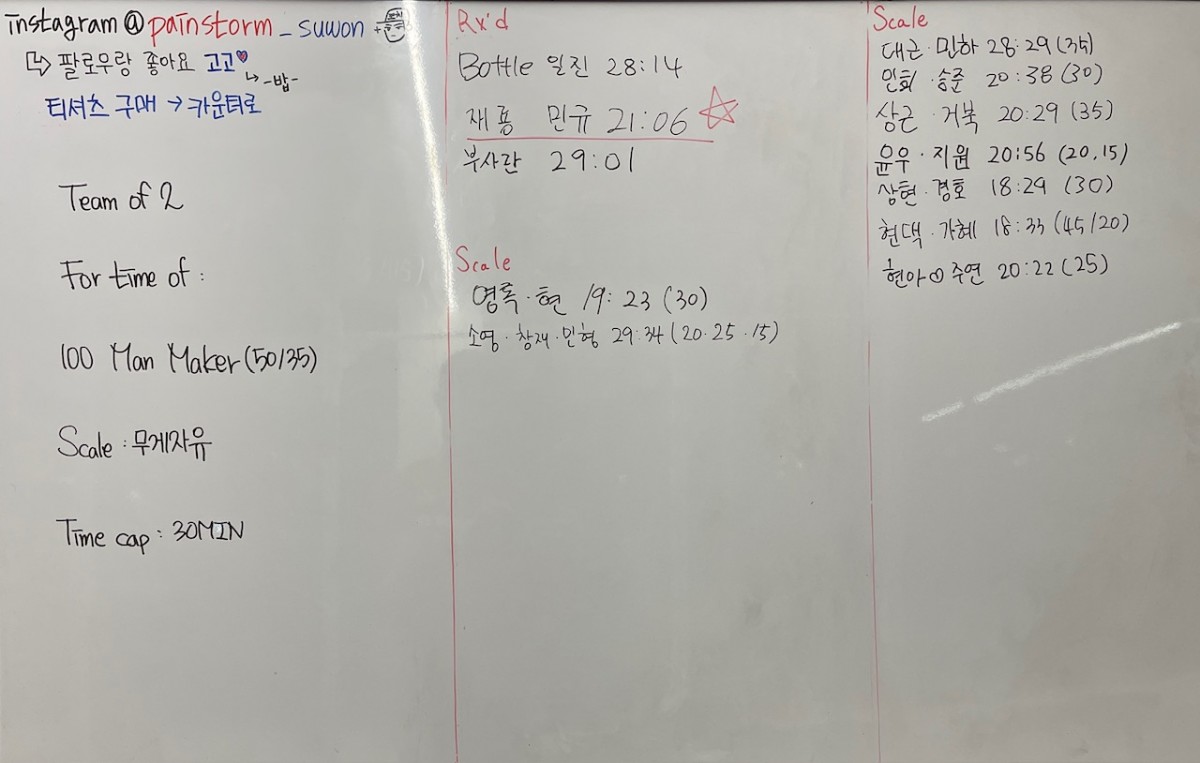 instagram@painstorm_suwon
팔로우랑 좋아요 고고
-밥-
티셔츠 구매 → 카운터로
Team of 2
For time of :
100 Man Maker (50/35)
Scale : 무게자유
Time cap : 30MIN
Rx'd
Bottle 일진 28:14
재룡 민규 21:06
부사관 29:01
Scale
영록·현 19:23 (30)
소영·창재·민형 29:34 (20·25·15)
Scale
대근·민하 28:29 (35)
민희·승준 20:38 (30)
상근·거북 20:29 (35)
윤우·지원 20:56 (20,15)
상현·경호 18:29 (30)
현택·가혜 18:33 (45/20)
현아♡주연 20:22 (25)